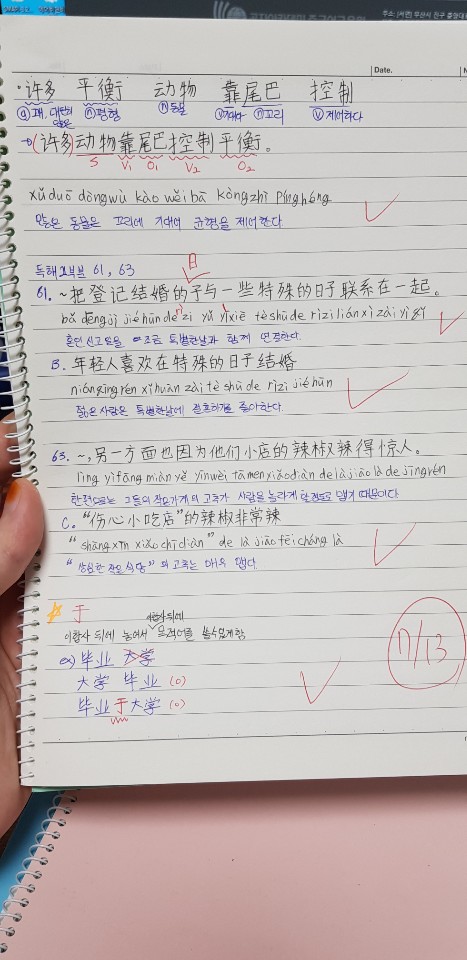 주소: (서면) 부산시 진구 중앙대
Date.
·许多 平衡 动物 靠尾巴 控制
ⓐ꽤, 대단히 많은 ⓝ평형 ⓝ동물 ⓥ기대다 ⓝ꼬리 ⓥ제어하다
→(许多)动物靠尾巴控制平衡。
S V₁ O₁ V₂ O₂
xǔ duō dòngwù kào wěi bā kòngzhì pínghéng
많은 동물은 꼬리에 기대어 균형을 제어한다
日
독해 2부분 61, 63
61. ~把登记结婚的子与一些特殊的日子联系在一起。
bǎ dēng jì jié hūn de zi yǔ yìxiē tèshū de rìzi lián xì zài yì qǐ
혼인신고일을 조금 특별한날과 함께 연결하다.
B. 年轻人喜欢在特殊的日子结婚
niánqīng rén xǐhuān zài tè shū de rìzi jié hūn
젊은 사람은 특별한날에 결혼하기를 좋아한다.
63. ~, 另一方面也因为他们小店的辣椒辣得惊人。
lìng yì fāng miàn yě yīnwèi tāmen xiǎo diàn de là jiāo là de jīngrén
한편으로는 그들의 작은가게의 고추가 사람을 놀라게 할정도로 맵기 때문이다
C. “伤心小吃店”的辣椒非常辣
“shāng xīn xiǎo chī diàn” de là jiāo fēi cháng là
“상심한 작은 식당”의 고추는 매우 맵다.
☆ 于
이합사 뒤에
이합사 뒤에 놓여서 목적어를 쓸수있게함
ex) 毕业 大学
大学 毕业 (o)
毕业于大学 (o)
11/13